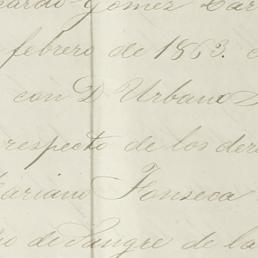 ardo Gomez Car
febrero de 1863.
con D. Urbano
respecto de los der
Mariano Fonseca
de Sangre de la